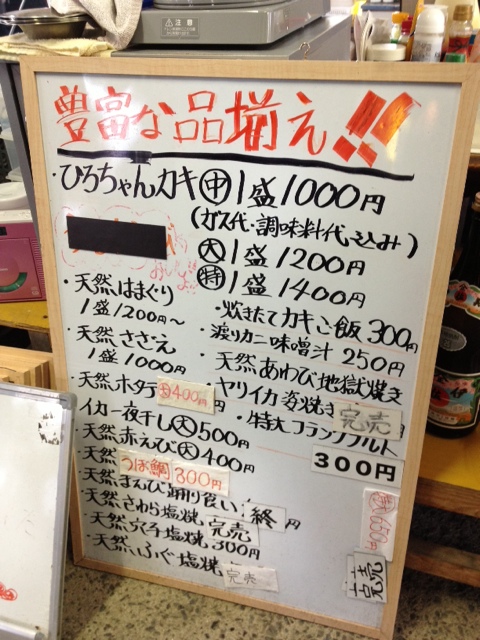 豊富な品揃え!!
・ひろちゃんカキ㊥1盛1000円
(ガス代・調味料代込み)
㊛1盛1200円
㊕1盛1400円
・天然はまぐり
1盛1200円〜
・天然さざえ
1盛1000円
・天然ホタテ 400円
イカ一夜干し(大)500円
・天然赤えび(大)400円
・天然うぼ鯛300円
・天然まんび踊り食い 終 円
・天然さわら塩焼 完売
・天然穴子塩焼300円
・天然ふぐ塩焼 完売
・炊きたてカキご飯300円
・渡りカニ味噌汁250円
・天然あわび地獄焼き
・ヤリイカ姿焼き 完売 円
・特大フランクフルト
300円
650円
完売
注意